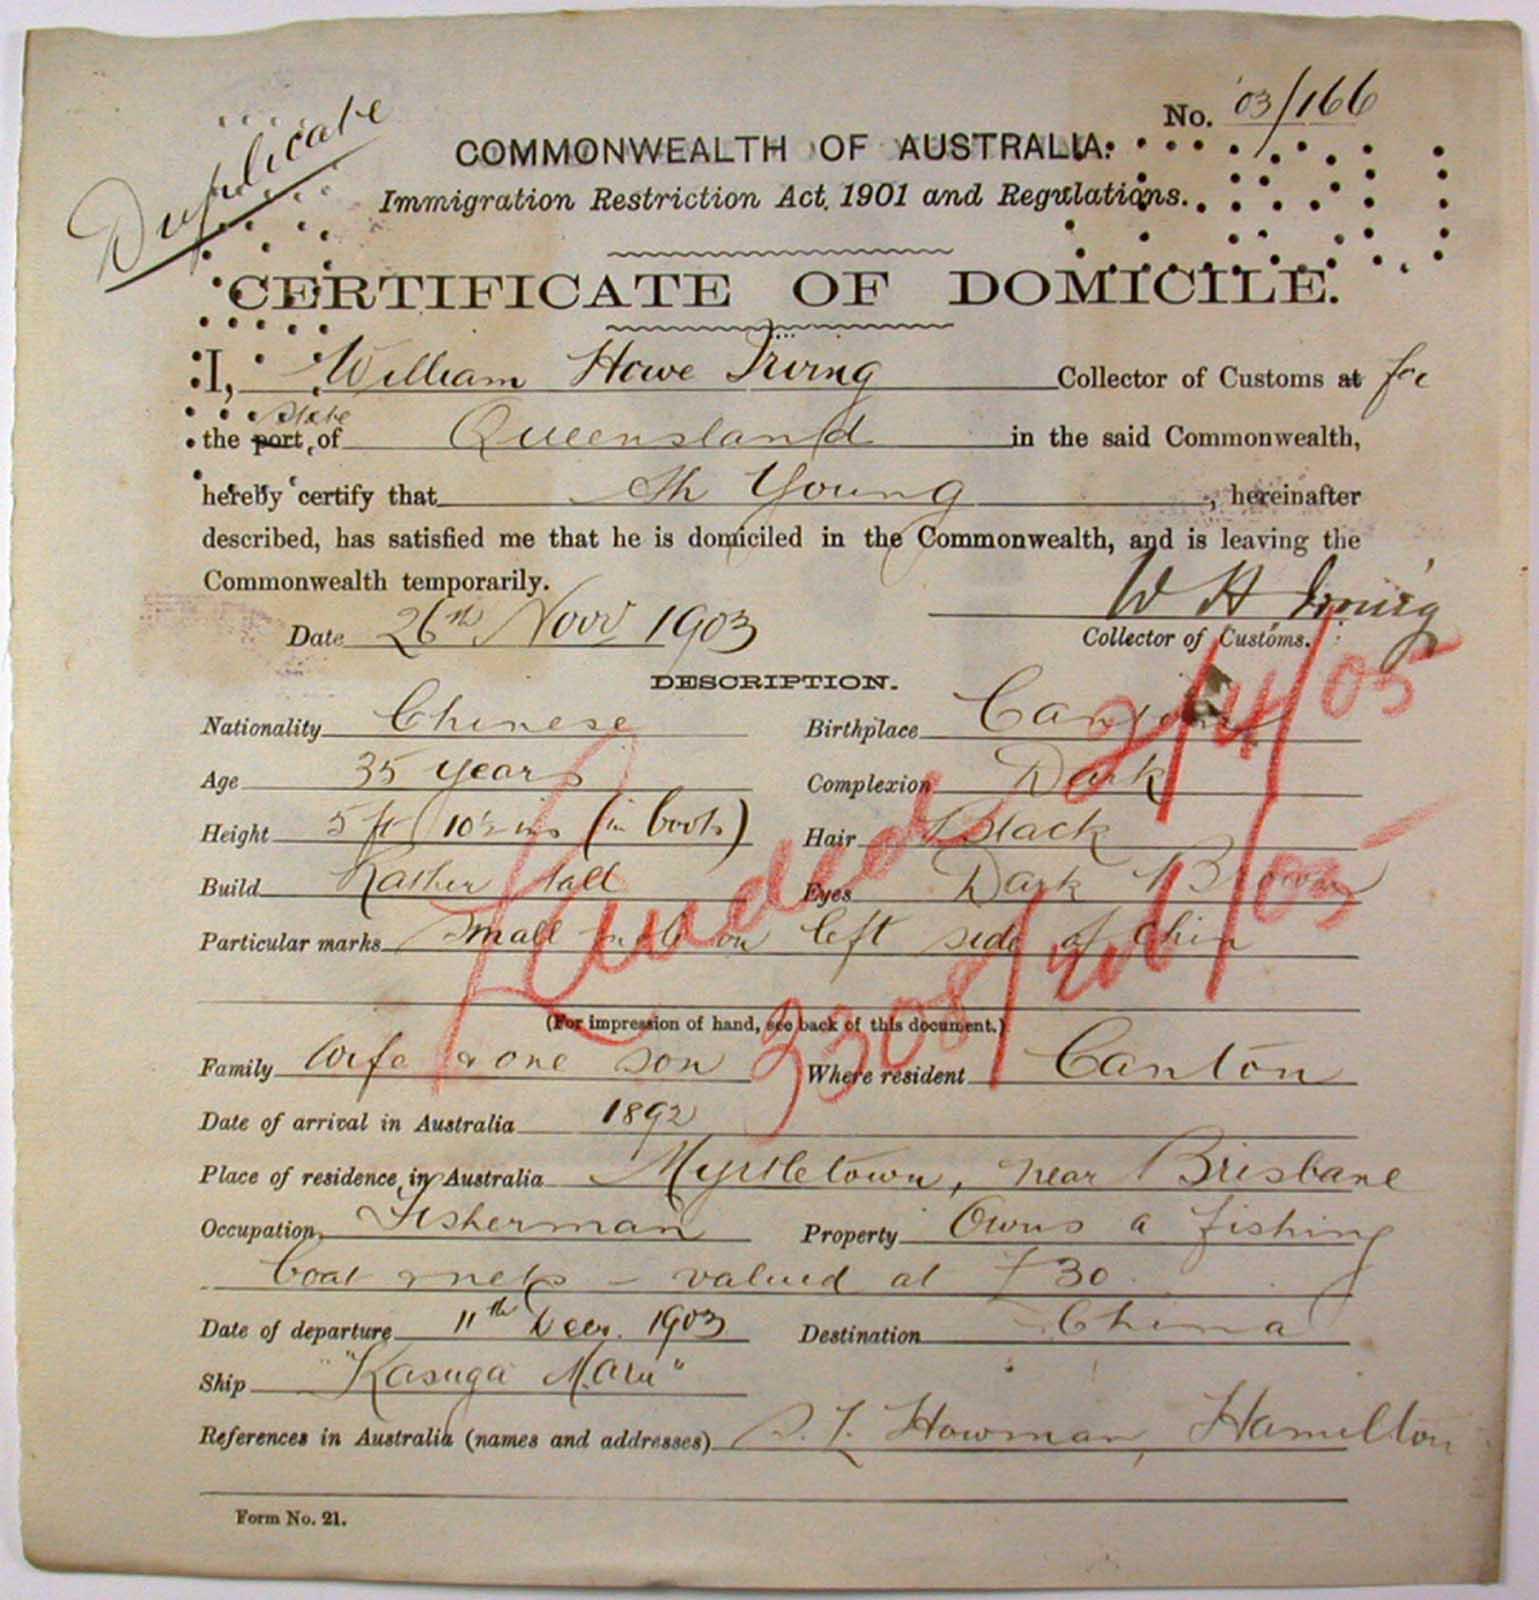 Duplicate
No. 03/166
COMMONWEALTH OF AUSTRALIA.
Immigration Restriction Act, 1901 and Regulations.
CERTIFICATE OF DOMICILE.
I, William Howe Irving Collector of Customs at for
State
the port of Queensland in the said Commonwealth,
hereby certify that Ah Young, hereinafter
described, has satisfied me that he is domiciled in the Commonwealth, and is leaving the
Commonwealth temporarily.
W H Irving
Date 26th Novr 1903 Collector of Customs.
DESCRIPTION.
Nationality Chinese Birthplace Canton
Age 35 years Complexion Dark
Height 5 ft 10½ ins (in boots) Hair Black
Build Rather tall Eyes Dark Brown
Particular marks Small mole on left side of Chin
Landed 2/4/05
3308/
/05
(For impression of hand, see back of this document.)
Family Wife & one son Where resident Canton
Date of arrival in Australia 1892
Place of residence in Australia Myrtletown, near Brisbane
Occupation Fisherman Property Owns a fishing
boat & nets - valued at £30.
Date of departure 11th Decr. 1903 Destination China
Ship "Kasuga Maru"
References in Australia (names and addresses) Howman, Hamilton
Form No. 21.